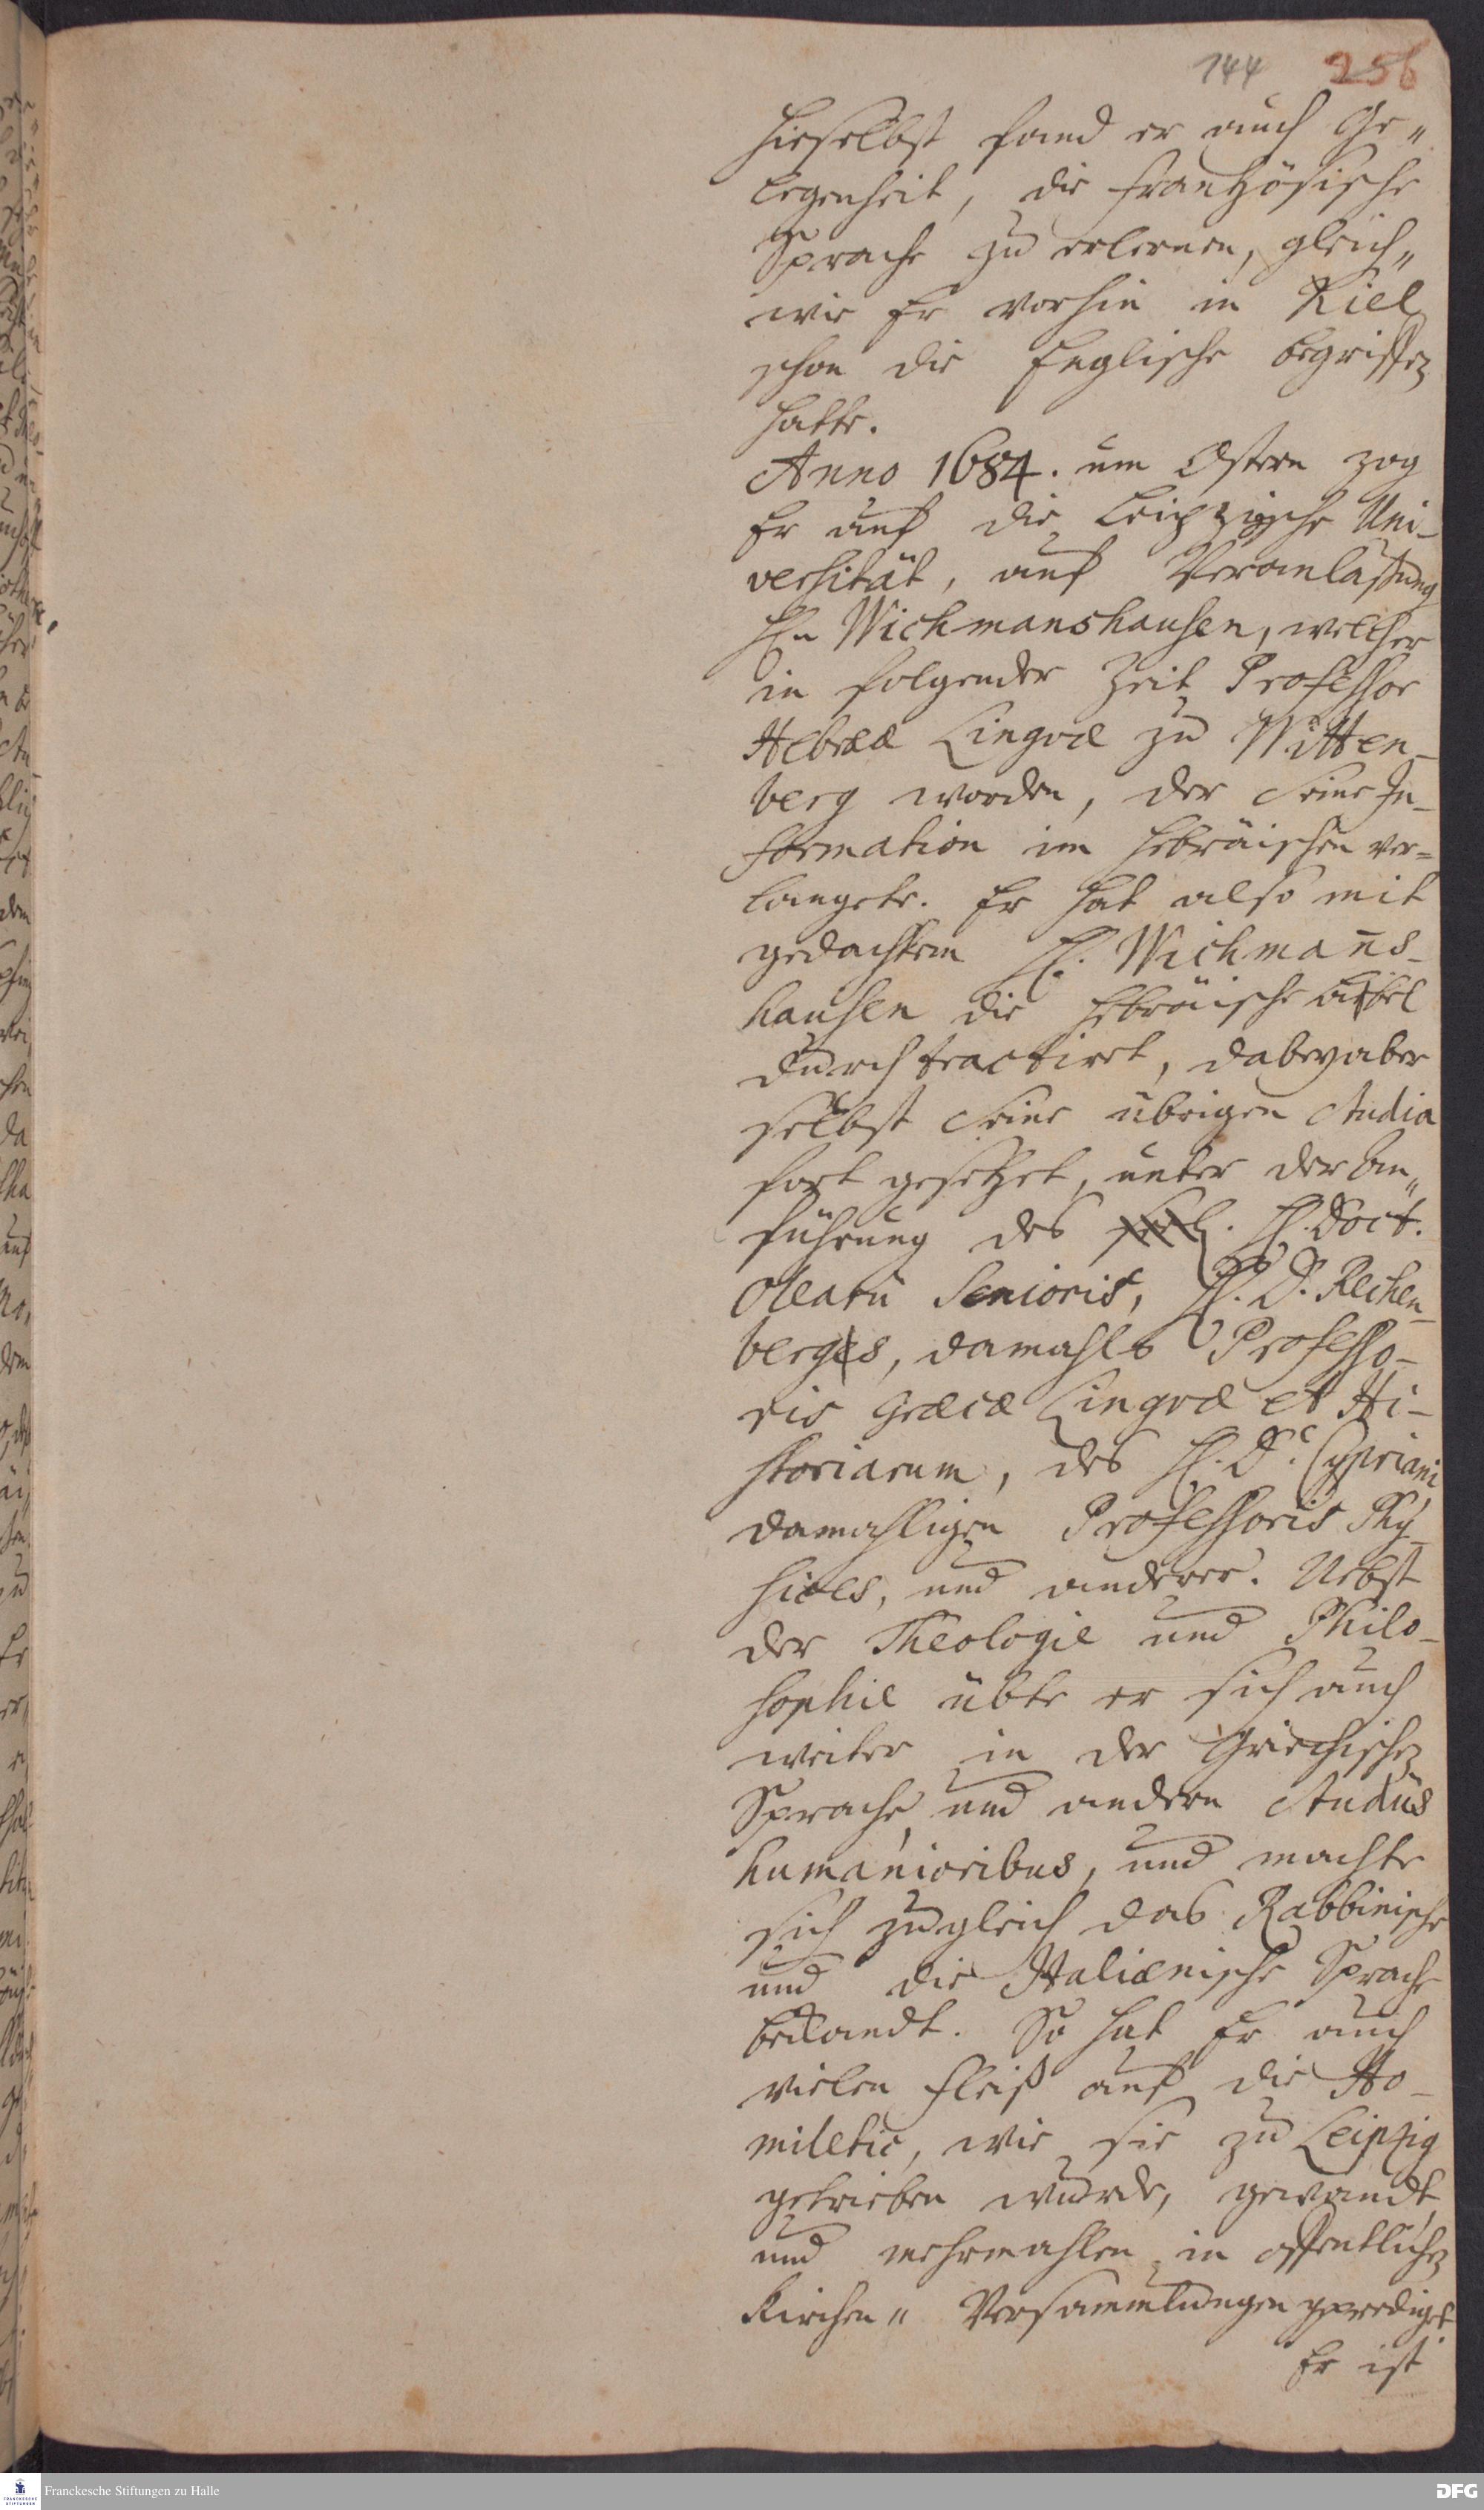 144 256
hieselbst fand er auch Ge„
legenheit, die frantzösische
Sprache zu erlernen, gleich„
wie Er vorhin in Kiel
schon die Englische begriffen
hatte.
Anno 1684. um Ostern zog
Er auf die Leipzigsche Uni-
versität, auf Veranlaßung
Hn Wichmanshausen, welcher
in folgender Zeit Professor
Hebrææ Lingvæ zu Witten-
berg worden, der Seine In-
formation im Hebräischen ver-
langete. Er hat also mit
gedachtem H. Wichman̄s-
hausen die Hebräische Bibel
durch tractiret, dabey aber
selbst Seine übrigen Studia
fort gesetzet, unter der An„
führung des H. Doct.
Olearii Senioris, H. D. Rechen-
bergs, damahls Professo-
ris Græcæ Lingvæ et Hi-
storiarum, des H. D. Cypriani
damahligen Professoris Phy-
sices, und anderer. Nebst
der Theologie und Philo-
sophie übte er sich auch
weiter in der Griechischen
Sprache, und andern Studiis
humanioribus, und machte
sich zugleich das Rabbinische
und die Italiænische Sprache
bekandt. So hat Er auch
vielen Fleiß auf die Ho-
miletic, wie sie zu Leipzig
getrieben wurde, gewandt
und mehrmahlen in offentlichen
Kirchen„ Versammlungen geprediget.
Er ist
Franckesche Stiftungen zu Halle
DFG